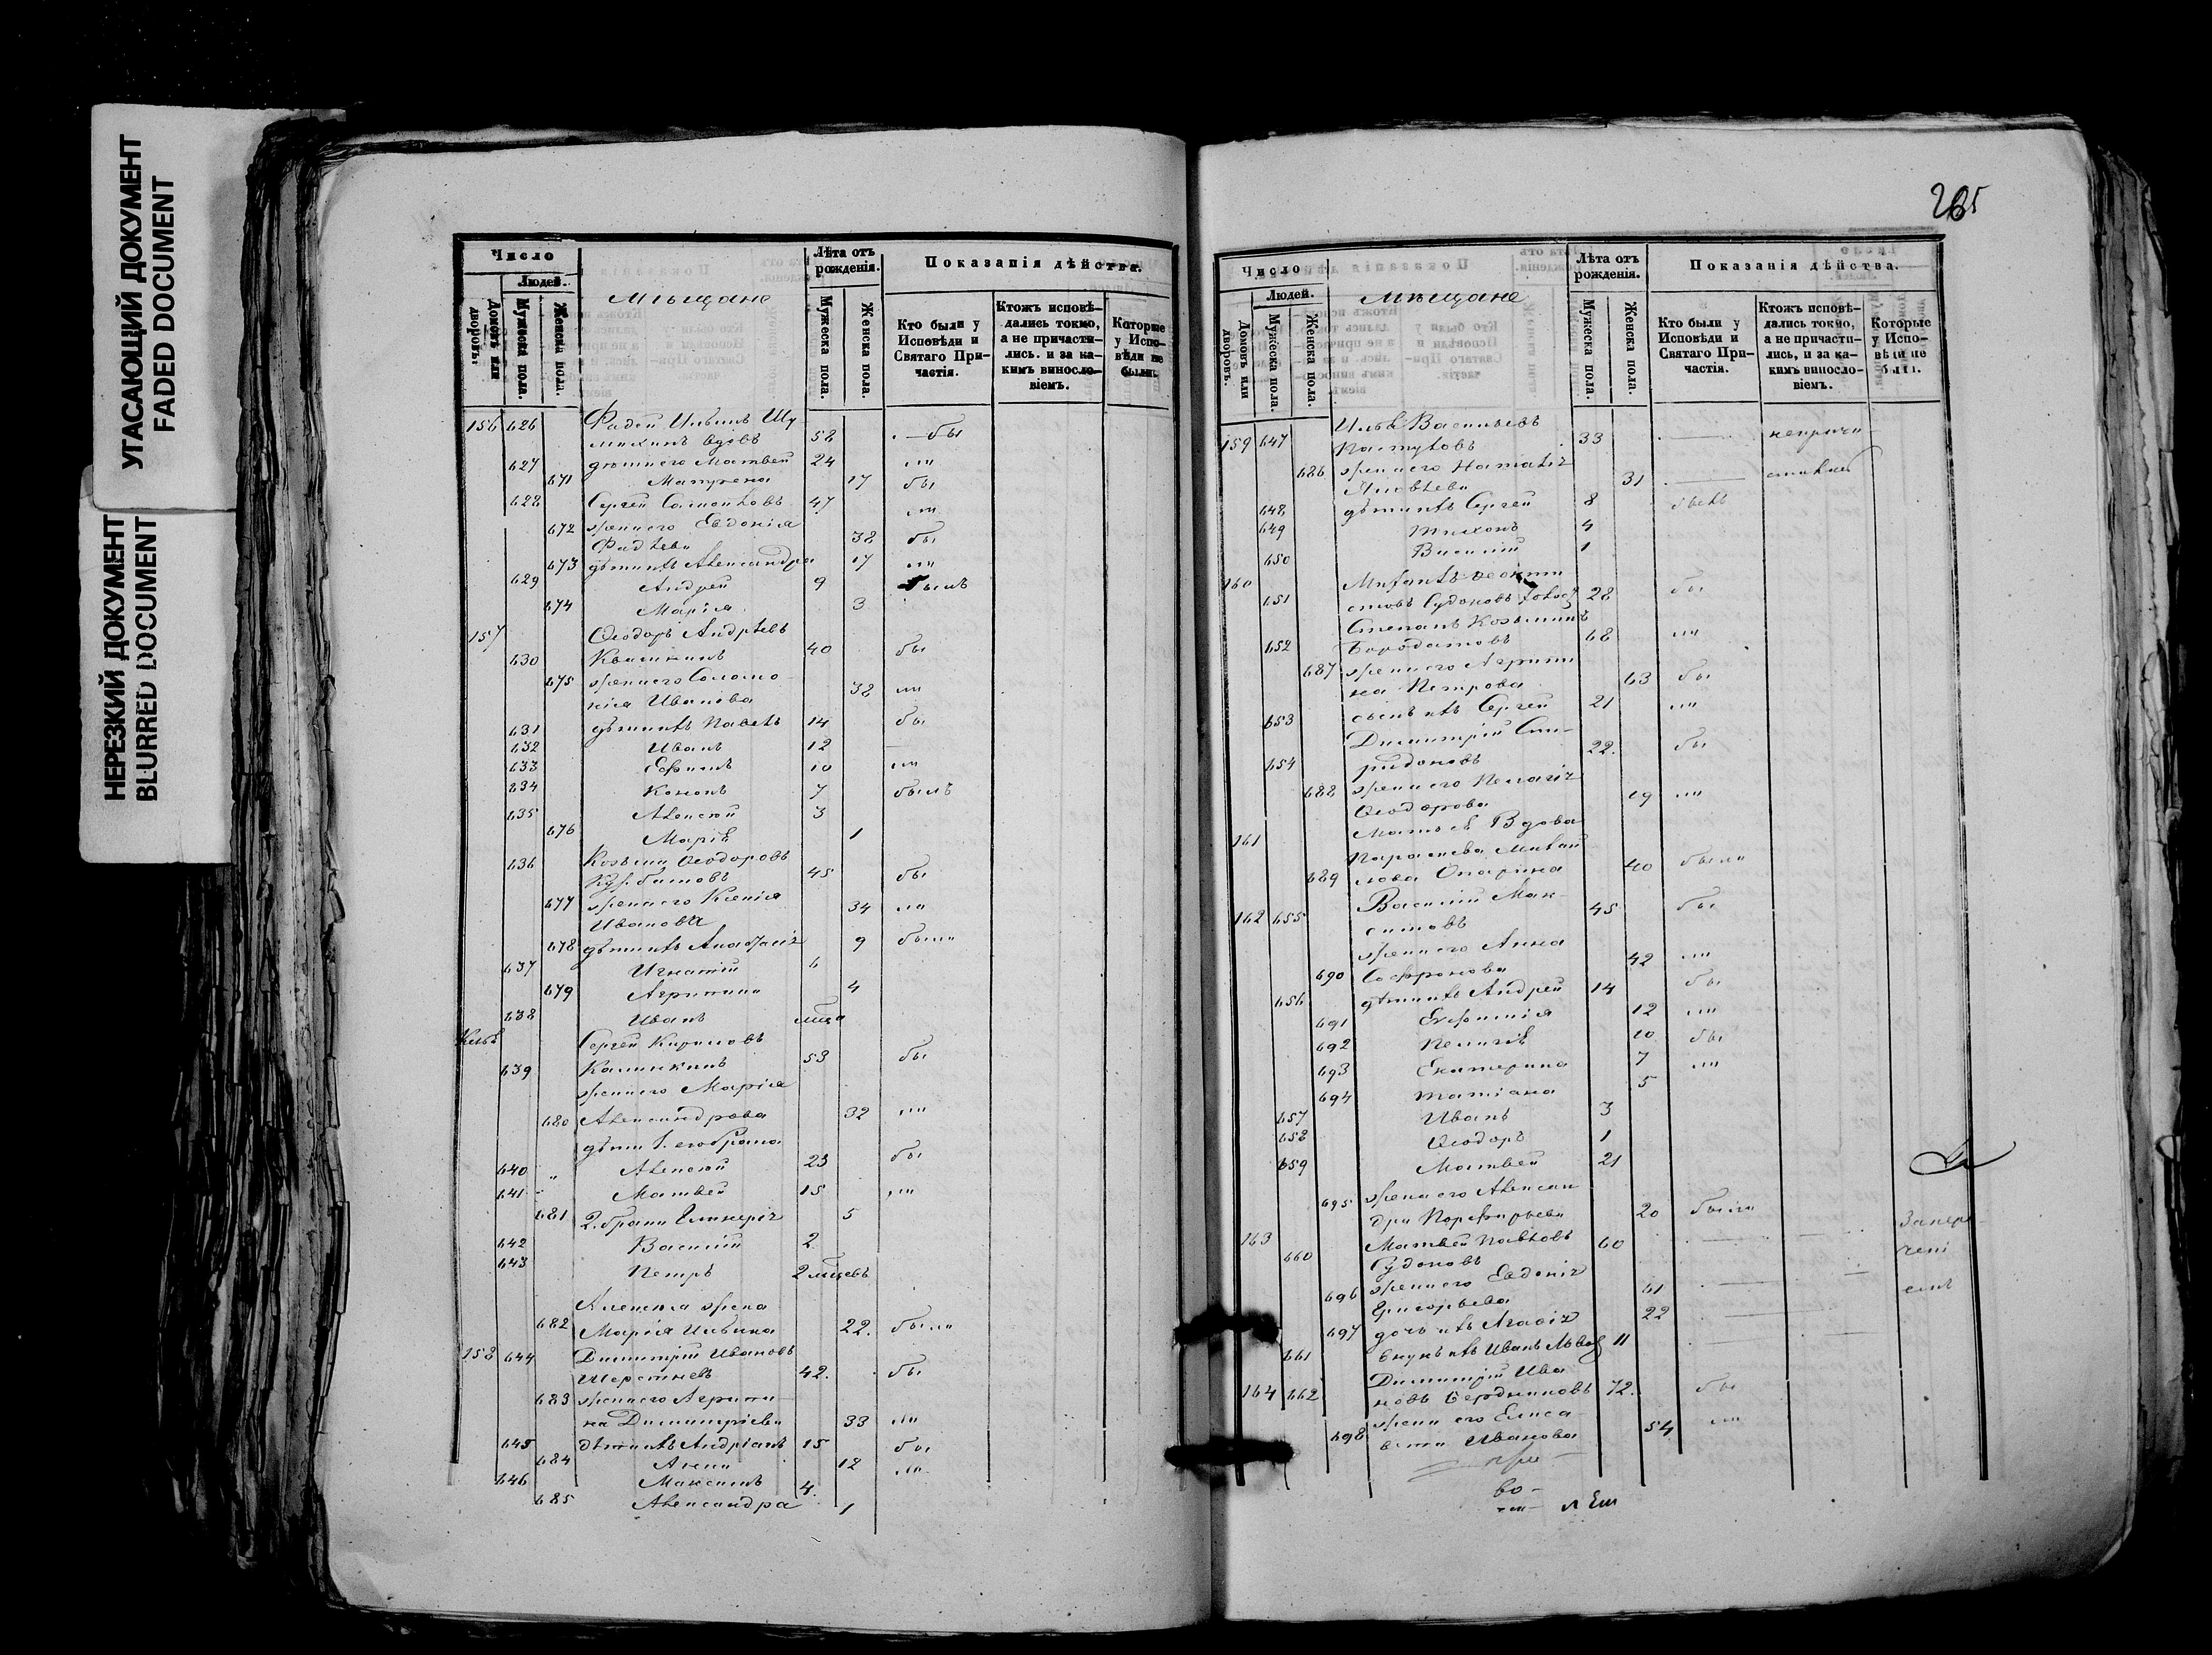 УГАСАЮЩИЙ ДОКУМЕНТ
FADED DOCUMENT
НЕРЕЗКИЙ ДОКУМЕНТ
BLURRED DOCUMENT
Число
Людей.
Домовъ или дворовъ.
Мужеска пола.
Женска пола.
Мѣщане
Лѣта отъ рожденія.
Мужеска пола.
Женска пола.
Показанія дѣйства.
Кто были у Исповѣди и Святаго Причастія.
Ктожъ исповѣдались токмо, а не причастились. и за какимъ винословіемъ.
Которые у Исповѣди не были.
156 626 Фадей Ильинъ
вдовъ 58 бы
627 дѣти его Матвей 24 ли
671 Матрена 17 бы
628 Сергей 47 ли
672 жена его Евдокія
Фадѣева 38 бы
673 дѣти ихъ Александра 17 ли
629 Андрей 9 былъ
674 Марія 3
157 Ѳеодоръ Андреевъ
630 Квашнинъ 40 бы
675 жена его Соломо-
нія Иванова 32 ли
631 дѣти ихъ Павелъ 14 бы
632 Иванъ 12
633 Ефимъ 10 ли
634 Кононъ 7 былъ
635 Алексей 3
676 Марія 1
636 Козьма Ѳеодоровъ
45 бы
677 жена его Ксенія
Иванова 34 ли
678 дѣти ихъ Анастасія 9 была
637 Игнатій 6
679 Агрипина 4
638 Иванъ
Сергей Кириловъ
639 Калинкинъ 53 бы
жена его Марія
680 Александрова 32 ли
дѣти 1. его брака
640 " Алексей 23 бы
641 Матвей 15 ли
681 2. брака Гликерія 5
642 Василій 2
643 Петръ 2 мѣсецъ
Алексея жена
682 Марія Ильина 22. была
158 644 Димитрій Ивановъ
Шерстневъ 42. бы
683 жена его Агрипи-
на Димитріева 33 ли
645 дѣти ихъ Андріанъ 15 бы
684 Анна 12 ли
646 Максимъ 4.
685 Александра 1
265
Число
Людей.
Домовъ или дворовъ.
Мужеска пола.
Женска пола.
Мѣщане
Лѣта отъ рожденія.
Мужеска пола.
Женска пола.
Показанія дѣйства.
Кто были у Исповѣди и Святаго Причастія.
Ктожъ исповѣдались токмо, а не причастились, и за какимъ винословіемъ.
Которые у Исповѣди не были.
Илья Васильевъ
159 647 Пастуховъ 33
686 жена его Наталія
Яковлева 31
648 дѣти ихъ Сергей 8 былъ
649 Тихонъ 4
650 Василій 1
160
651 Судоковъ 28 бы
Степанъ Козьминъ
652 Бородатовъ 68 ли
687 жена его Агрипи
на Петрова 63 бы
653 сынъ ихъ Сергей 21 ли
Димитрій Спи-
654 ридоновъ 22. бы
688 жена его Пелагія
Ѳеодорова 19 ли
161 Мать ея Вдова
Параскева Михай
689 лова Опарина 40 была
162 655 Василій Мак-
симовъ 45 бы
жена его Анна
690 Софронова 42 ли
656 дѣти ихъ Андрей 14 бы
691 Евфимія 12 ли
692 Пелагія 10 бы
693 Екатерина 7 ли
694 Татіана 5
657 Иванъ 3
658 Ѳеодоръ 1
659 Матвей 21
695 жена его Алексан
дра Порфирьева 20 была
163 Матвей Павловъ
660 Судоковъ 60
696 жена его Евдокія
Григорьева 61
697 дочь ихъ Агафія 22
661 внукъ ихъ Иванъ Львов 11
Димитрій Ива
164 662 новъ Бердниковъ 72. бы
жена его Елиса-
698 вета Иванова 54 ли